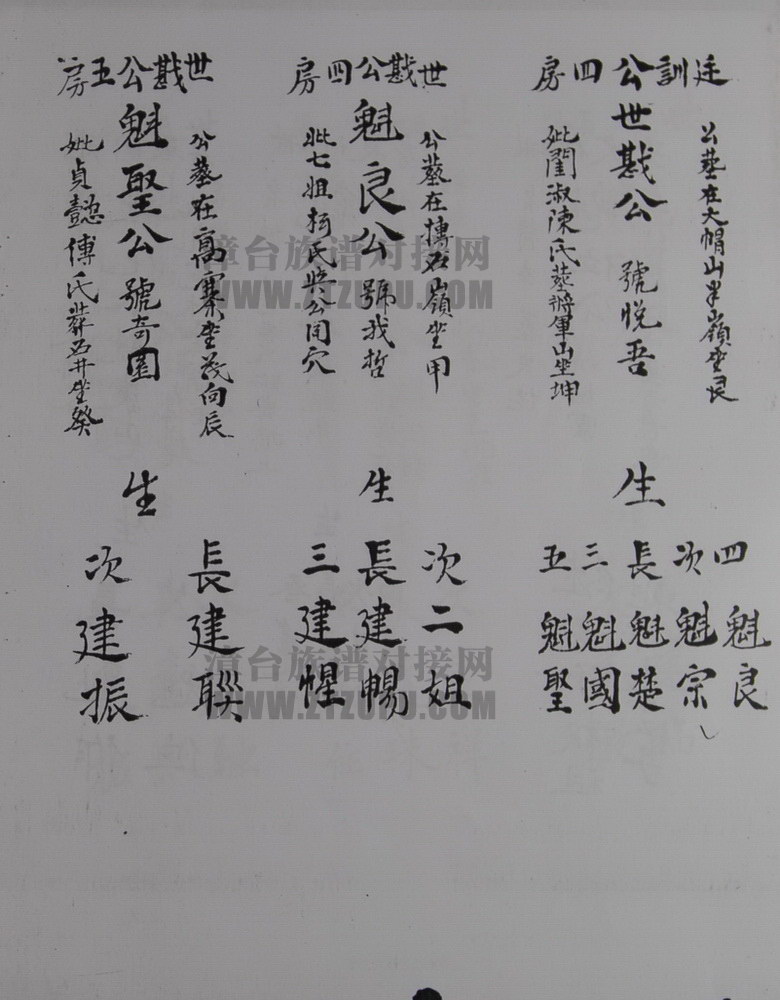 廷訓公四房
公墓在大帽山半山嶺坐艮
世戡公 號悅吾
妣閨淑陳氏葬將軍山坐坤
生
四 魁良
次 魁宗
長 魁楚
三 魁國
五 魁聖
世戡公四房
公墓在摶石嶺坐甲
魁良公 號我哲
妣七姐柯氏與公同穴
生
次二姐
長建暢
三建惺
世戡公五房
公墓在高寨坐 向辰
魁聖公 號奇園
妣貞懿傅氏葬石井坐癸
生
長建聯
次建振
漳台族谱对接网
WWW.ZTZUPU.COM
漳台族谱对接网
WWW.ZTZUPU.COM